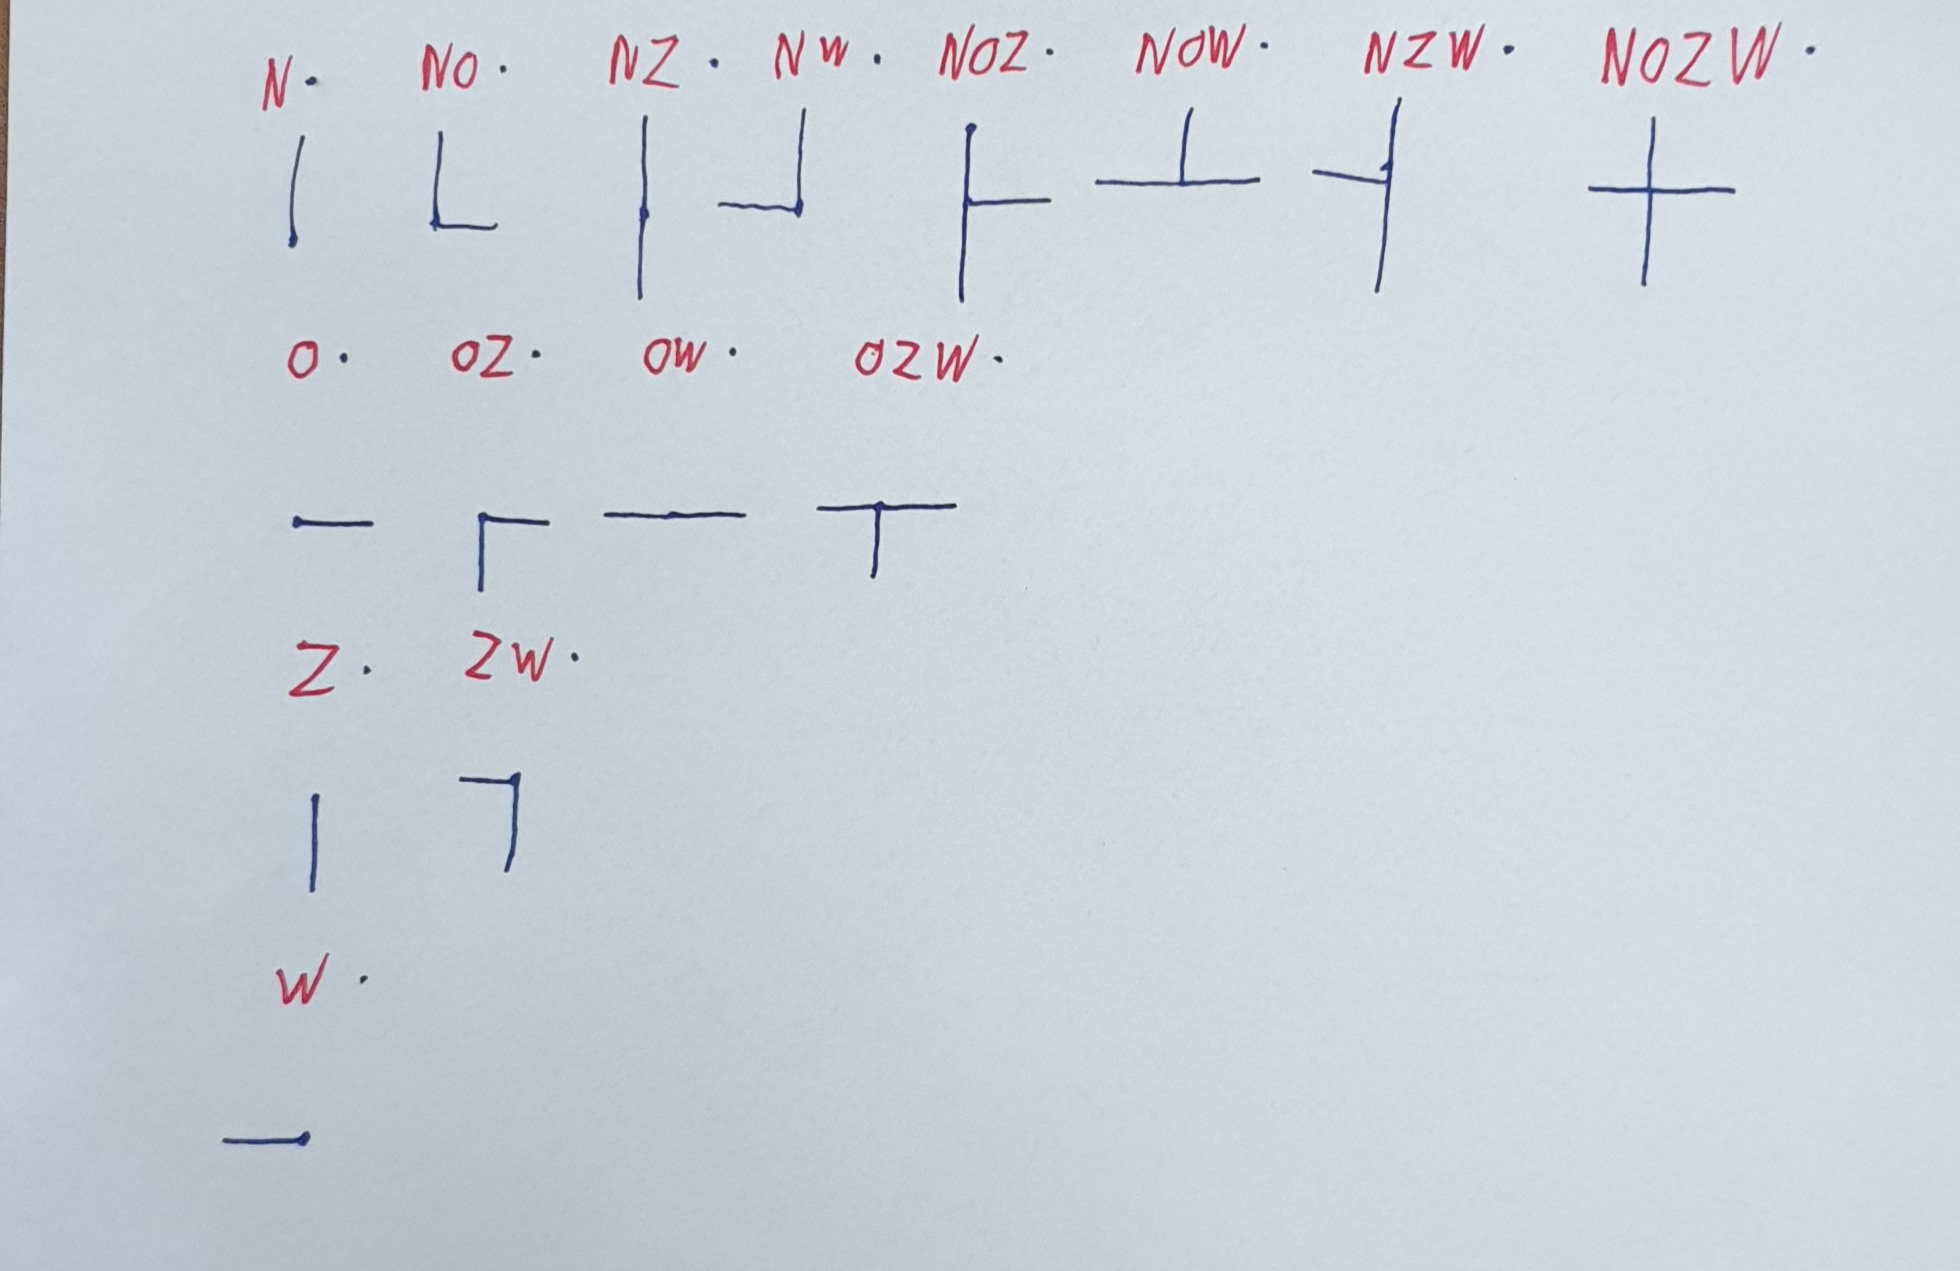 N. NO. NZ. NW. NOZ. NOW. NZW. NOZW.
O. OZ. OW. OZW.
Z. ZW.
W.